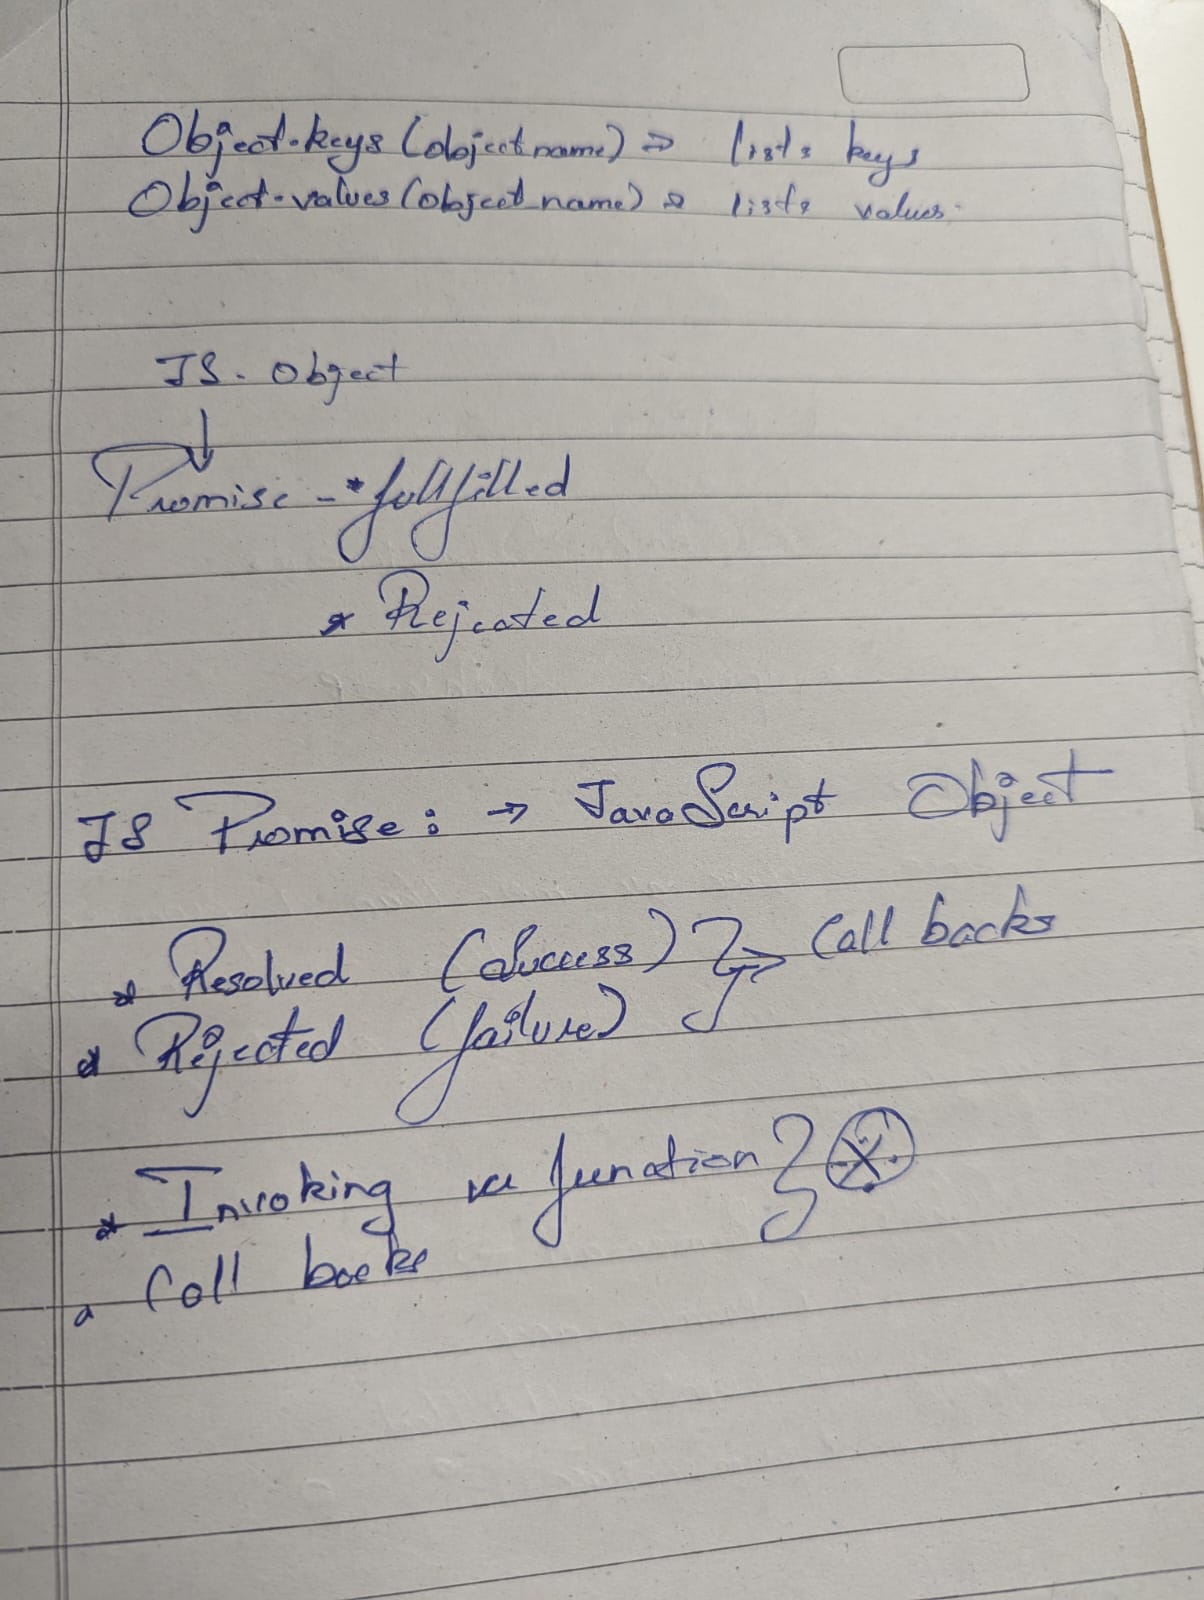 Object.keys (object name) => lists keys
Object.values (object name) => lists values.
JS. Object
↓
Promise - * fullfilled
* Rejected
JS Promise : → JavaScript Object
* Resolved (Success) } => Call backs
* Rejected (failure)
* Invoking function }
Call backs